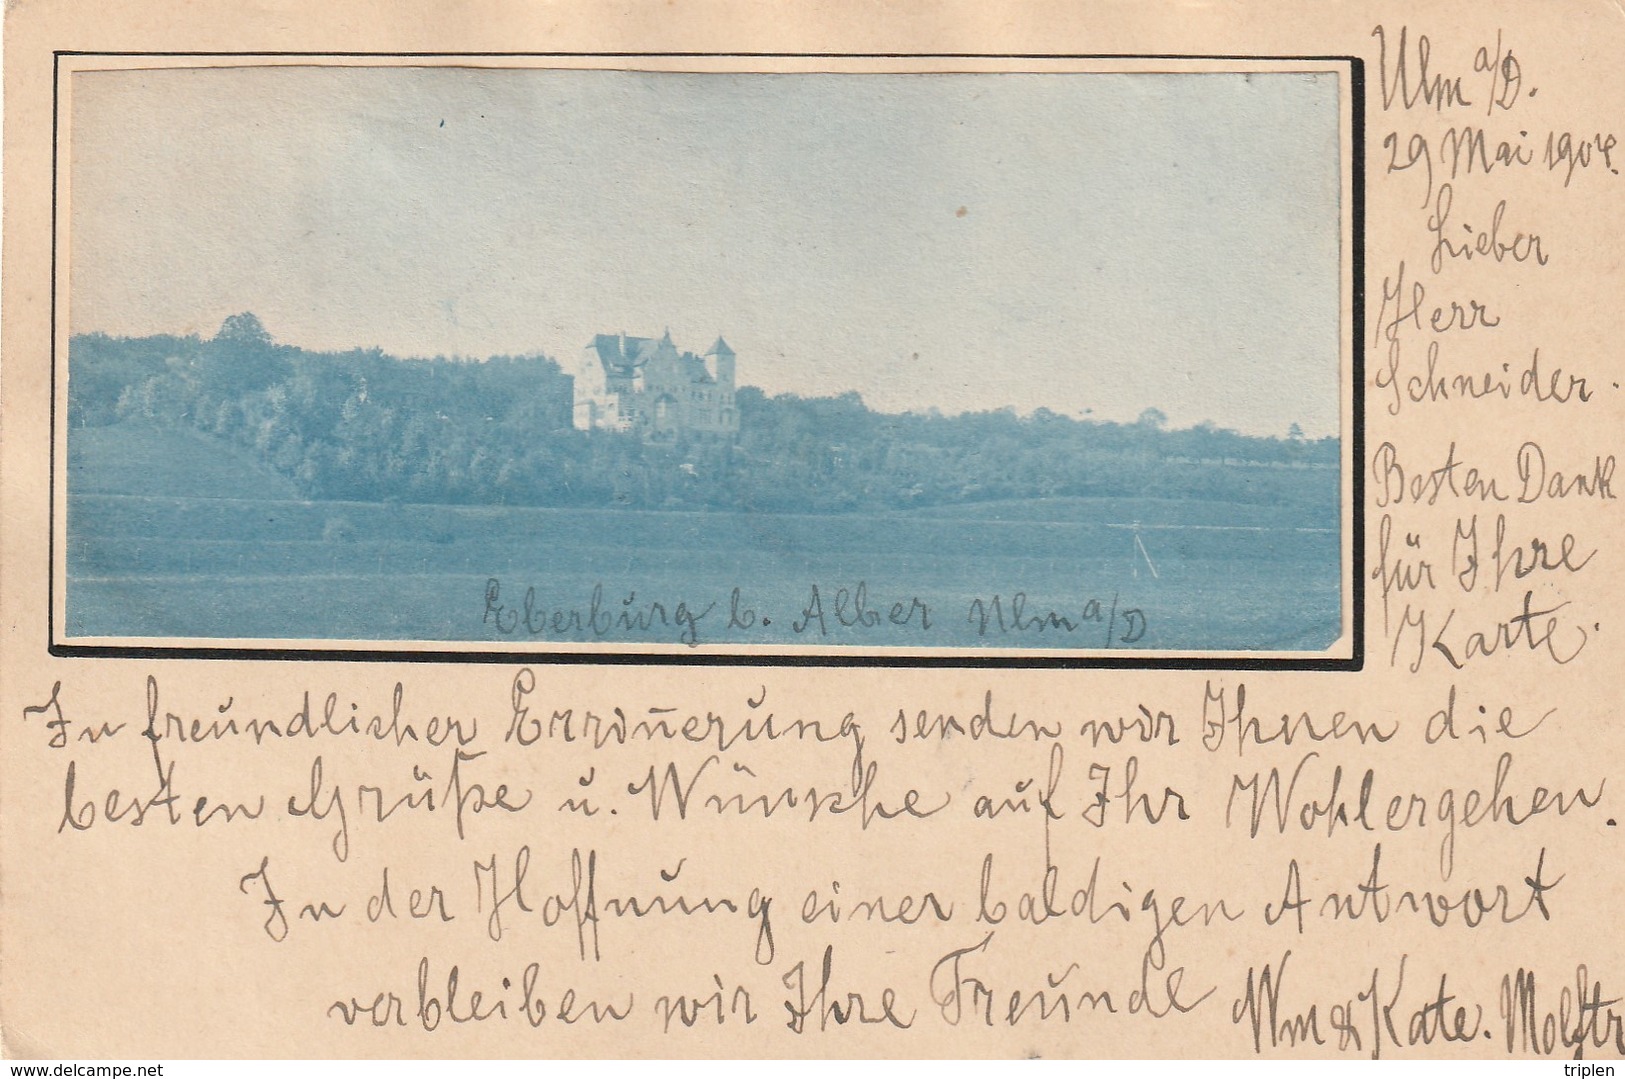 Ulm a/D.
29 Mai 1904.
Lieber
Herr
Schneider.
Besten Dank
für Ihre
Karte.
Eberburg b. Alber Ulm a/D
In freundlicher Errin̄erung senden wir Ihnen die
besten Grüße u. Wünsche auf Ihr Wohlergehen.
In der Hoffnung einer baldigen Antwort
verbleiben wir Ihre Freunde Wm & Kate.
www.delcampe.net
triplen